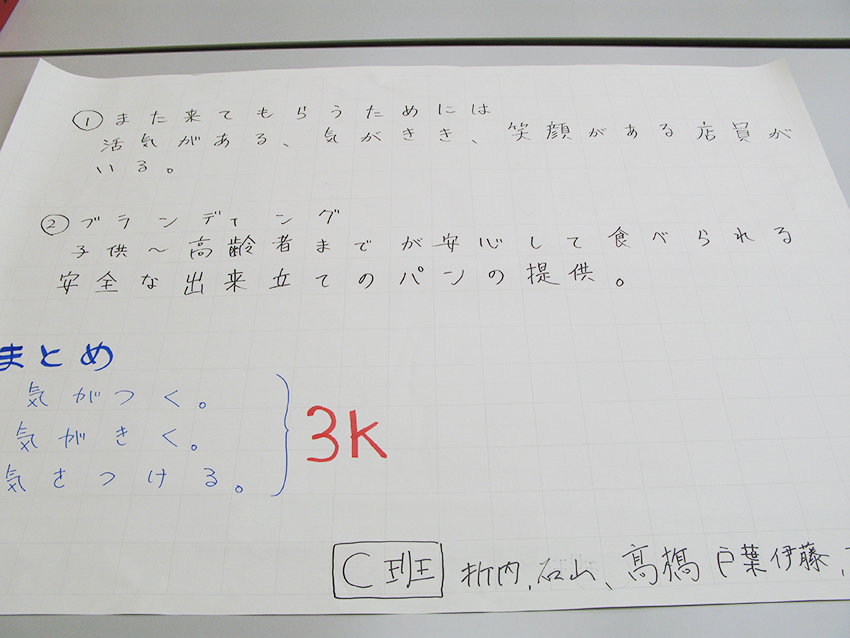 ① また来てもらうためには
活気がある、気がきき、笑顔がある店員が
いる。
② ブランディング
子供〜高齢者までが安心して食べられる
安全な出来立てのパンの提供。
まとめ
気がつく。
気がきく。
気をつける。
3K
C班 折内、石山、高橋 戸葉 伊藤、